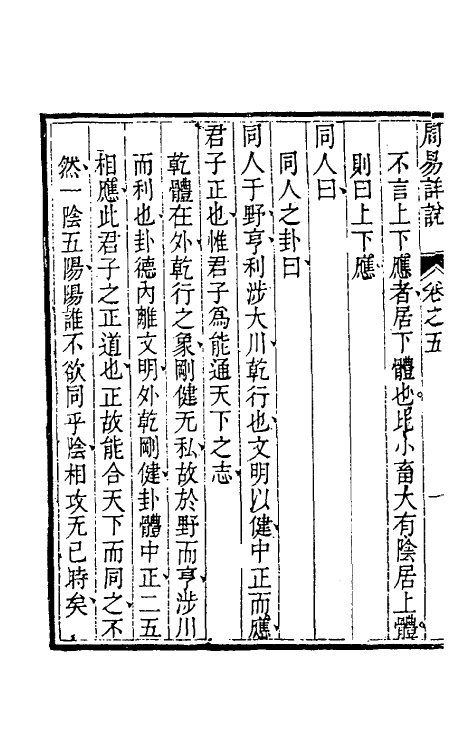 周易詳說 卷之五 一
不言上下應者居下體也比小畜大有陰居上體
則曰上下應
同人曰
同人之卦曰
同人于野亨利涉大川乾行也文明以健中正而應
君子正也惟君子爲能通天下之志
乾體在外乾行之象剛健无私故於野而亨涉川
而利也卦德內離文明外乾剛健卦體中正二五
相應此君子之正道也正故能合天下而同之不
然一陰五陽陽誰不欲同乎陰相攻无已時矣